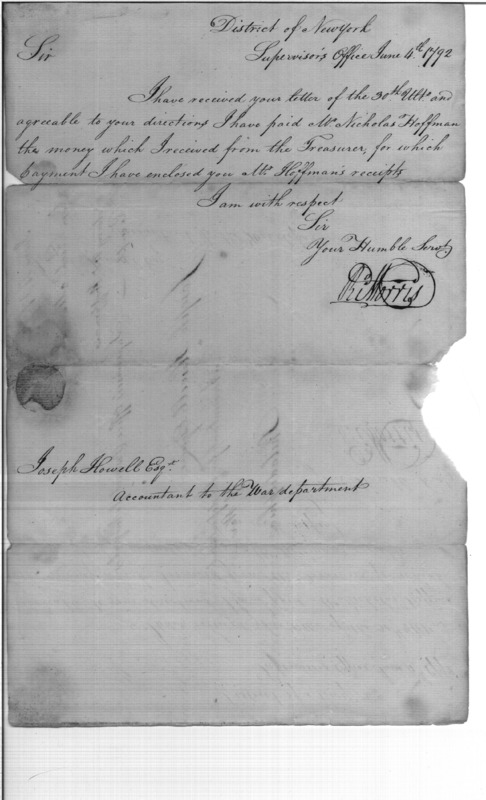 District of New York
Sir
Supervisor's Office June 4th. 1792
I have received your letter of the 30th Ulto. and
agreeable to your directions I have paid Mr. Nicholas Hoffman
the money which I received from the Treasurer, for which
payment I have enclosed you Mr. Hoffman's receipts
I am with respect
Sir
Your Humble Servt.
Rd. Morris
Joseph Howell Esqr.
Accountant to the War department